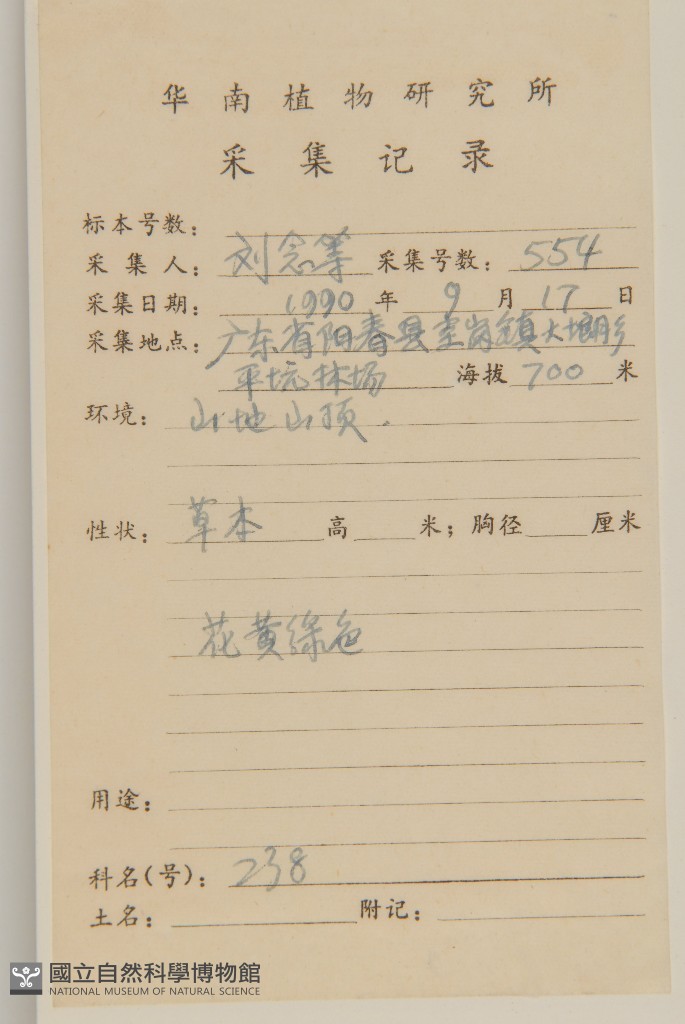 华南植物研究所
采集记录
标本号数:
采集人: 刘念等 采集号数: 554
采集日期: 1990 年 9 月 17 日
采集地点: 广东省阳春县圭岗镇大塱乡
平坑林场 海拔 700 米
环境: 山地山顶.
性状: 草本 高 米; 胸径 厘米
花黄绿色
用途:
科名(号): 238
土名: 附记:
國立自然科學博物館
NATIONAL MUSEUM OF NATURAL SCIENCE